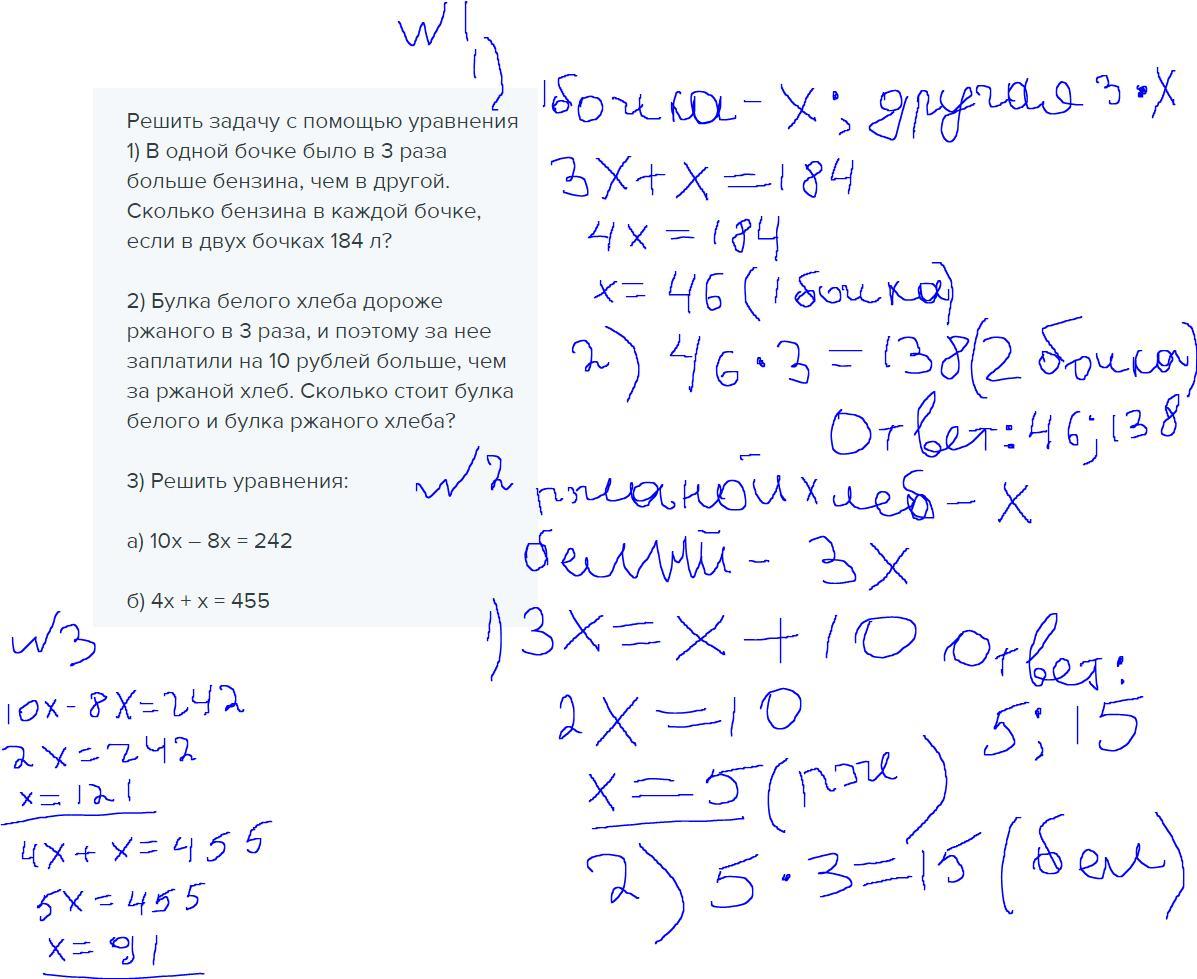 Решить задачу с помощью уравнения
1) В одной бочке было в 3 раза
больше бензина, чем в другой.
Сколько бензина в каждой бочке,
если в двух бочках 184 л?
2) Булка белого хлеба дороже
ржаного в 3 раза, и поэтому за нее
заплатили на 10 рублей больше, чем
за ржаной хлеб. Сколько стоит булка
белого и булка ржаного хлеба?
3) Решить уравнения:
а) 10x – 8x = 242
б) 4x + x = 455
№1
1)
1бочка - x; другая 3·x
3x+x=184
4x=184
x=46 (1 бочка)
2) 46·3=138(2 бочка)
Ответ: 46; 138
№2
ржаной хлеб - x
белый - 3x
1) 3x=x+10
2x=10
x=5 (рж)
2) 5·3=15 (бел)
Ответ:
5; 15
№3
10x-8x=242
2x=242
x=121
4x+x=455
5x=455
x=91